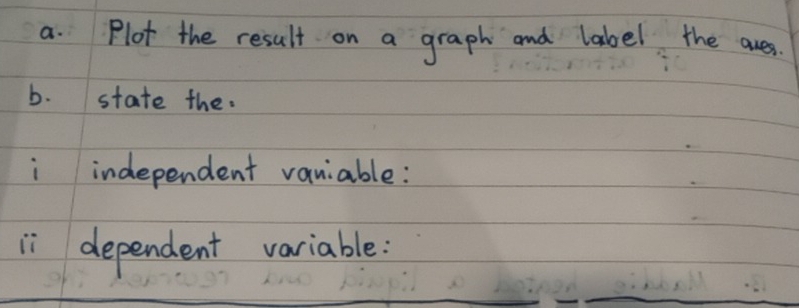 a. Plot the result on a graph and label the axes.
b. state the:
i independent variable:
ii dependent variable: